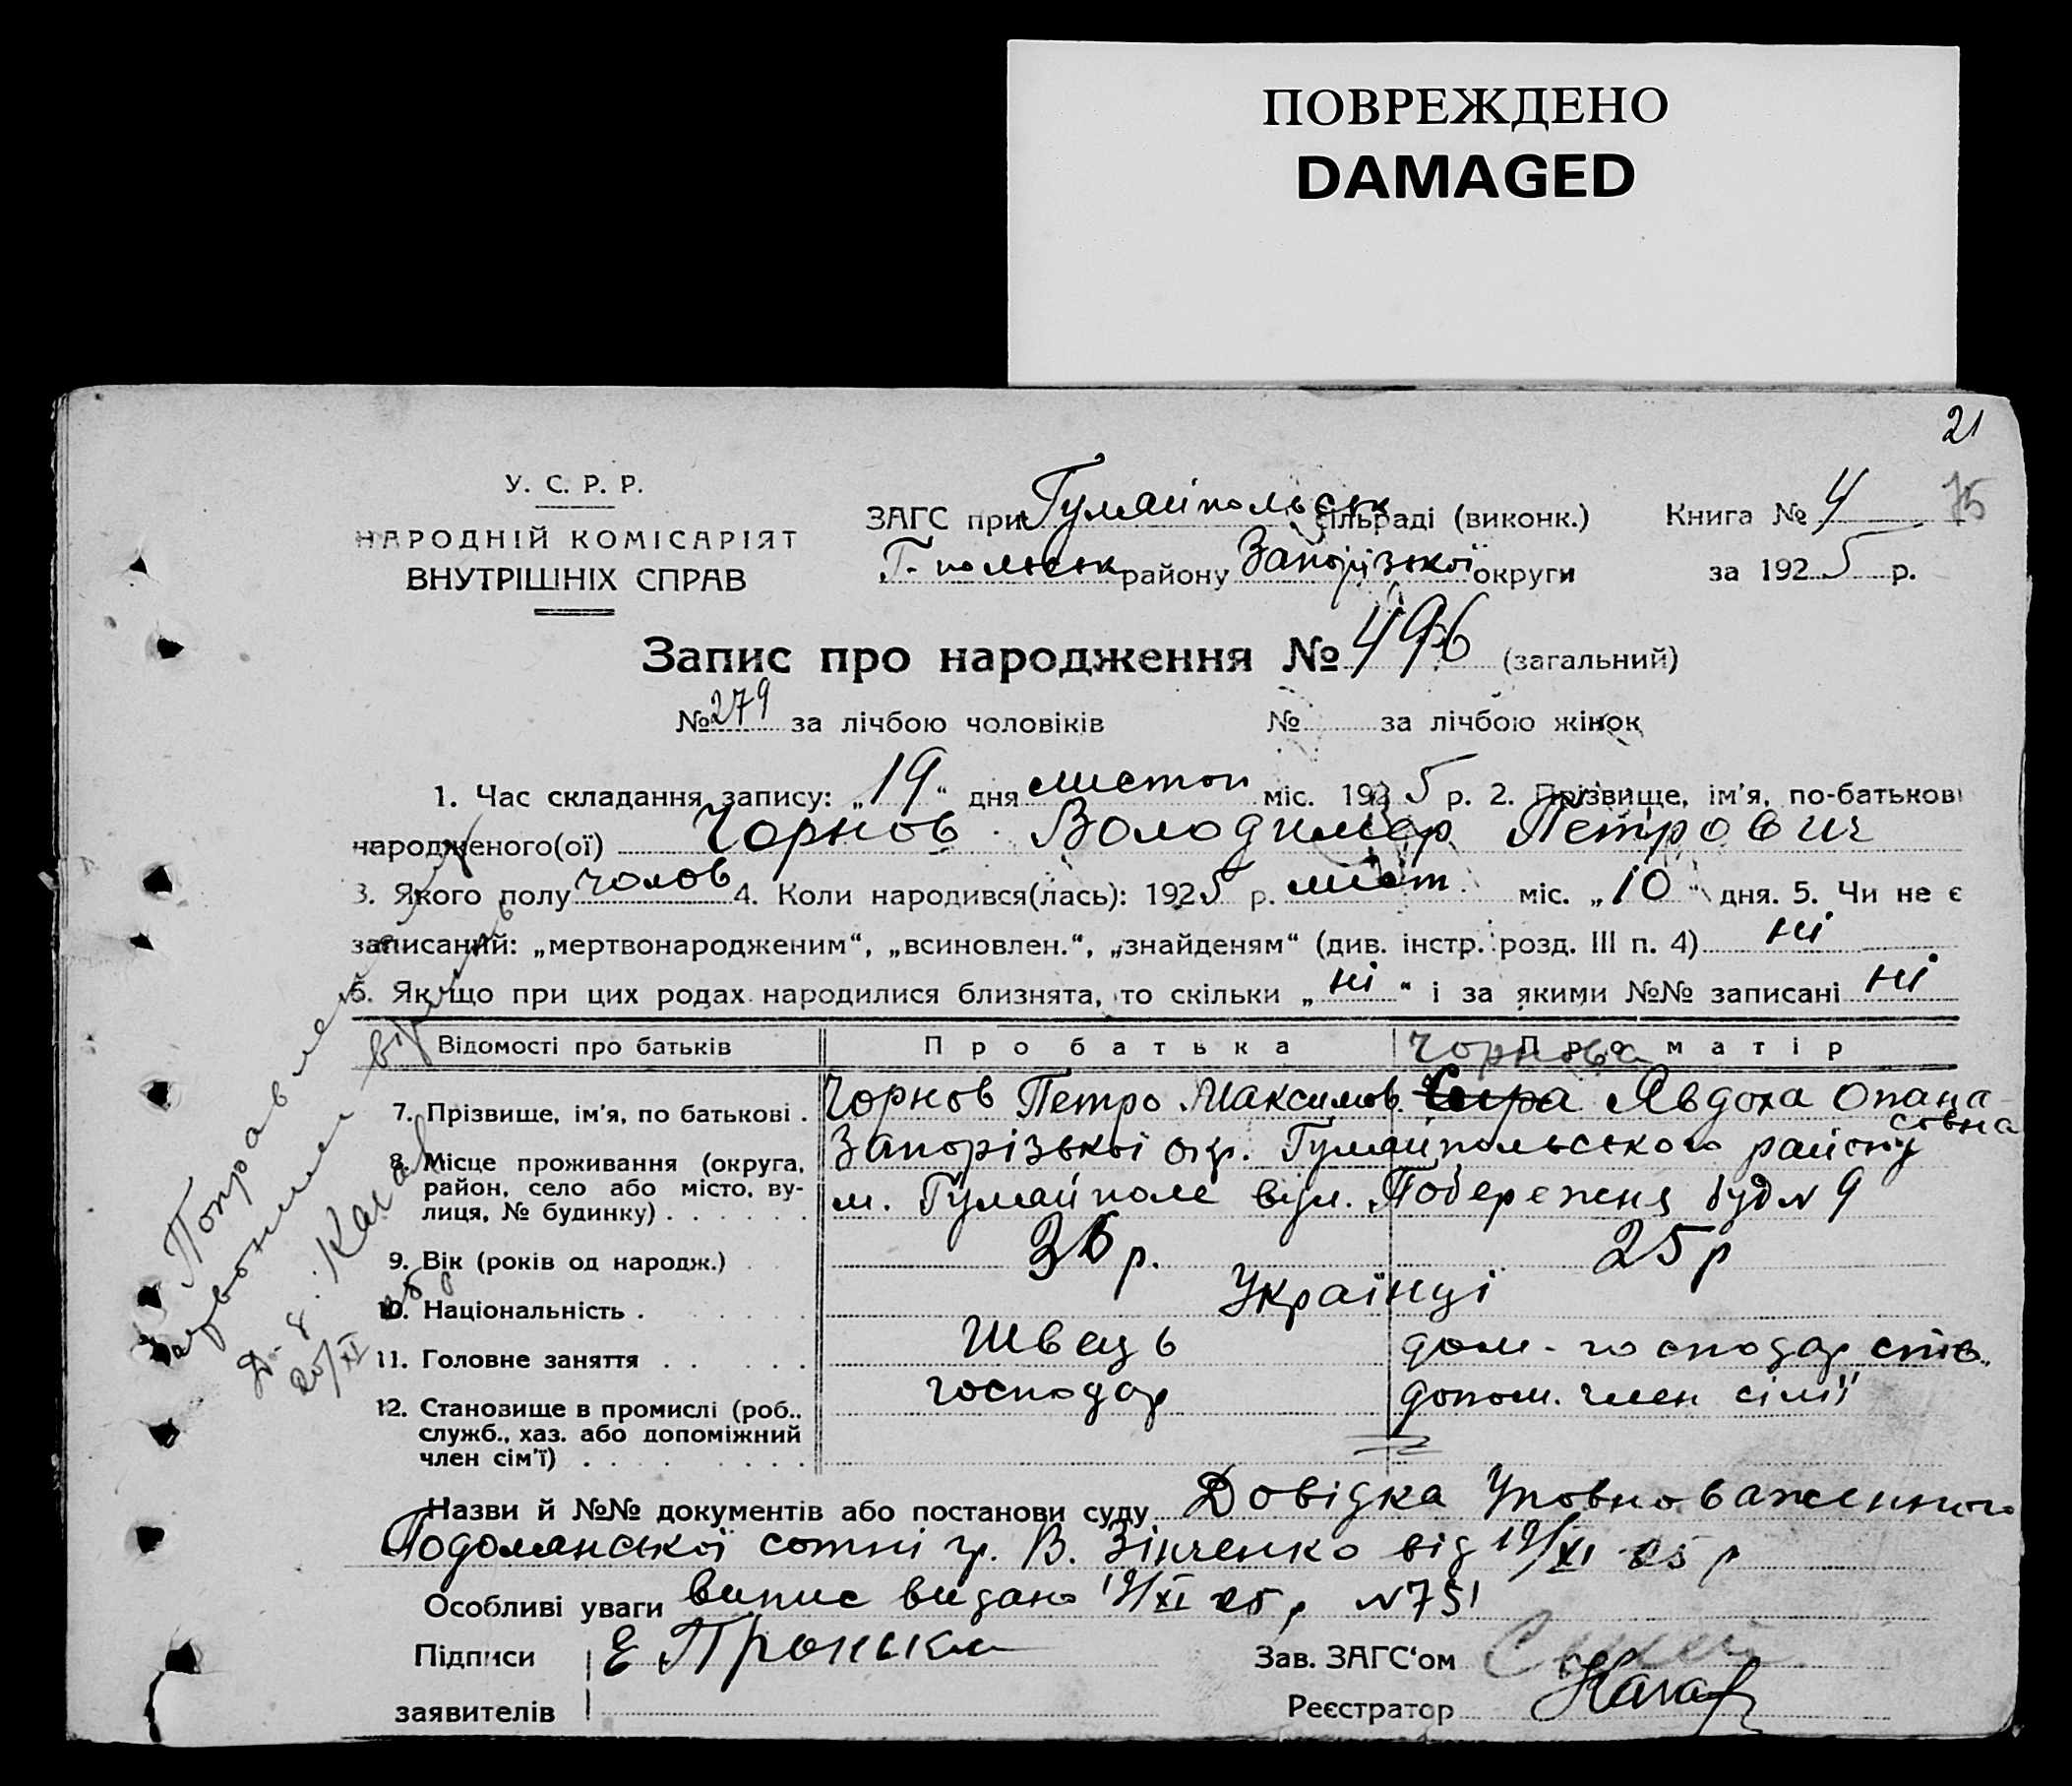 ПОВРЕЖДЕНО
DAMAGED
21
У. С. Р. Р.
НАРОДНІЙ КОМІСАРІЯТ
ВНУТРІШНІХ СПРАВ
ЗАГС при Гуляйпольськ сільраді (виконк.)
Г.-польськ району Запорізької округи
Книга № 4
75
за 1925 р.
Запис про народження № 496 (загальний)
№ 279 за лічбою чоловіків № за лічбою жінок
1. Час складання запису: „19" дня листоп міс. 1925 р. 2. Прізвище, ім'я, по-батькові
народженого(ої) Чорнов Володимер Петрович
3. Якого полу чолов 4. Коли народився(лась): 1925 р. лист. міс. „10" дня. 5. Чи не є
записаний: „мертвонародженим", „всиновлен.", „знайденям" (див. інстр. розд. III п. 4) ні
6. Якщо при цих родах народилися близнята, то скільки „ні" і за якими №№ записані ні
Відомості про батьків Про батька Про матір
Чорнова
7. Прізвище, ім'я, по батькові . Чорнов Петро Максимов. Явдоха Опана-
совна
8. Місце проживання (округа, район, село або місто, ву-лиця, № будинку) . . . . . .
Запорізької окр. Гуляйпольського району
м. Гуляйполе вул. Побережня буд № 9
9. Вік (років од народж.) . . 36 р. 25 р
10. Національність . Українці
11. Головне заняття . . . . . Швець дом-господарств.
12. Становище в промислі (роб.. служб., хаз. або допоміжний член сім'ї) . . . . . . . .
господар допом. член сімії
Назви й №№ документів або постанови суду Довідка Уповноваженного
Подолянської сотні гр. В. Зінченко від 19/XI 25 р
Особливі уваги випис видано 19/XI 25 р № 751
Підписи
заявителів
Е Пронька
Зав. ЗАГС'ом
Реєстратор
Поправлен
вірити
20/XI 25 р